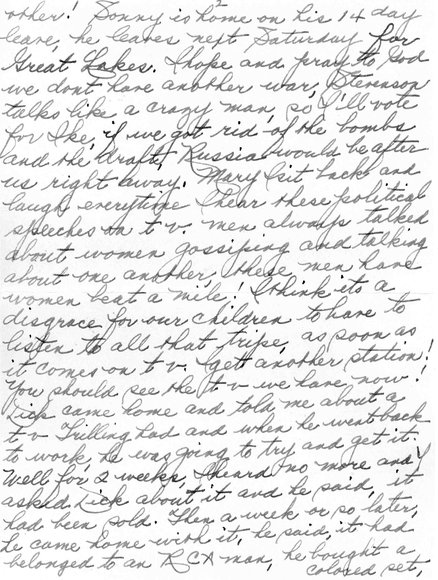 2
other! Sonny is home on his 14 day
leave, he leaves next Saturday for
Great Lakes. I hope and pray to God
we dont have another war, Stevenson
talks like a crazy man, so I'll vote
for Ike, if we got rid of the bombs
and the draft, Russia would be after
us right away. Mary I sit back and
laugh everytime I hear these political
speeches on t v. men always talked
about women gossiping and talking
about one another, these men have
women beat a mile! I think its a
disgrace for our children to have to
listen to all that tripe, as soon as
it comes on t v. I get another station!
You should see the t v we have now!
Dick came home and told me about a
t v Trilling had and when he went back
to work, he was going to try and get it.
Well for 2 weeks, I heard no more and I
asked Dick about it and he said, it
had been sold. Then a week or so later,
he came home with it, he said, it had
belonged to an RCA man, he bought a
colored set,